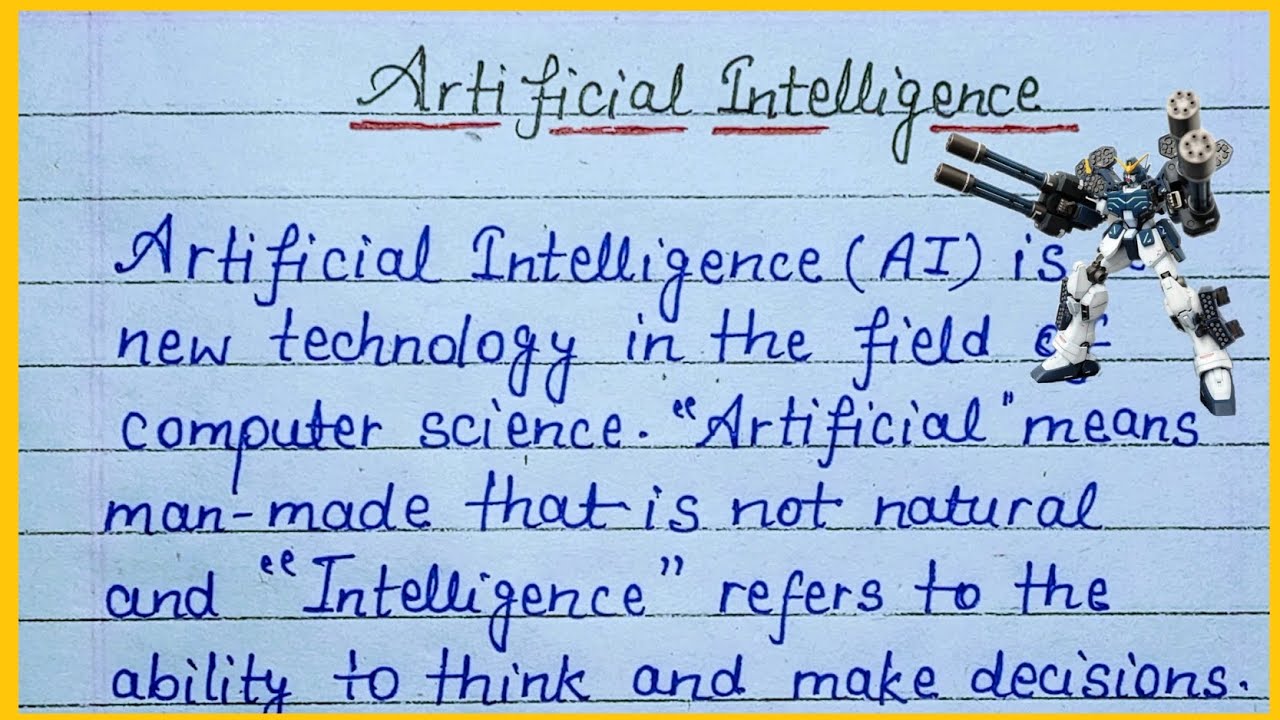 Artificial Intelligence
Artificial Intelligence (AI) is
new technology in the field of
computer science. "Artificial" means
man-made that is not natural
and "Intelligence" refers to the
ability to think and make decisions.